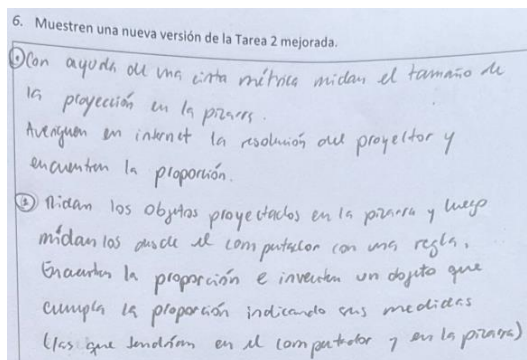 6. Muestren una nueva versión de la Tarea 2 mejorada.
① Con ayuda de una cinta métrica midan el tamaño de
la proyección en la pizarra.
Averiguen en internet la resolución del proyector y
encuentren la proporción.
② Midan los objetos proyectados en la pizarra y luego
midanlos desde el computador con una regla.
Encuentren la proporción e inventen un objeto que
cumpla la proporción indicando sus medidas
(las que tendrían en el computador y en la pizarra)